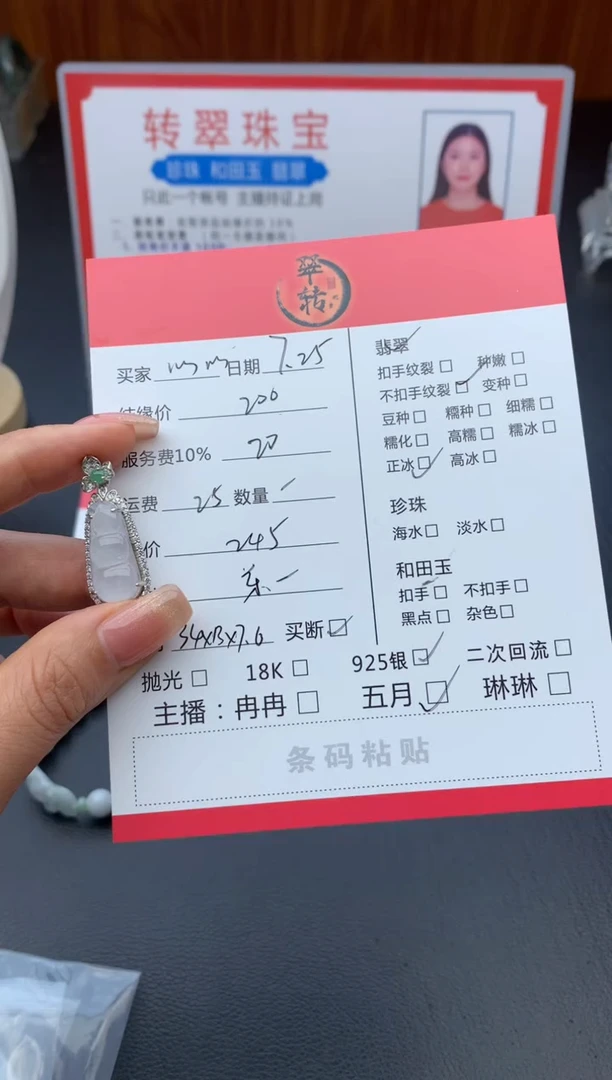 转翠珠宝
珍珠 和田玉 翡翠
只此一个帐号 主播持证上岗
翠
转
买家 日期 7.25
结缘价 200
服务费10% 20
运费 25 数量 一
价 245
买断
抛光 18K 925银 二次回流
主播：冉冉 五月 琳琳
条码粘贴
翡翠
扣手纹裂 种嫩
不扣手纹裂 变种
豆种 糯种 细糯
糯化 高糯 糯冰
正冰 高冰
珍珠
海水 淡水
和田玉
扣手 不扣手
黑点 杂色